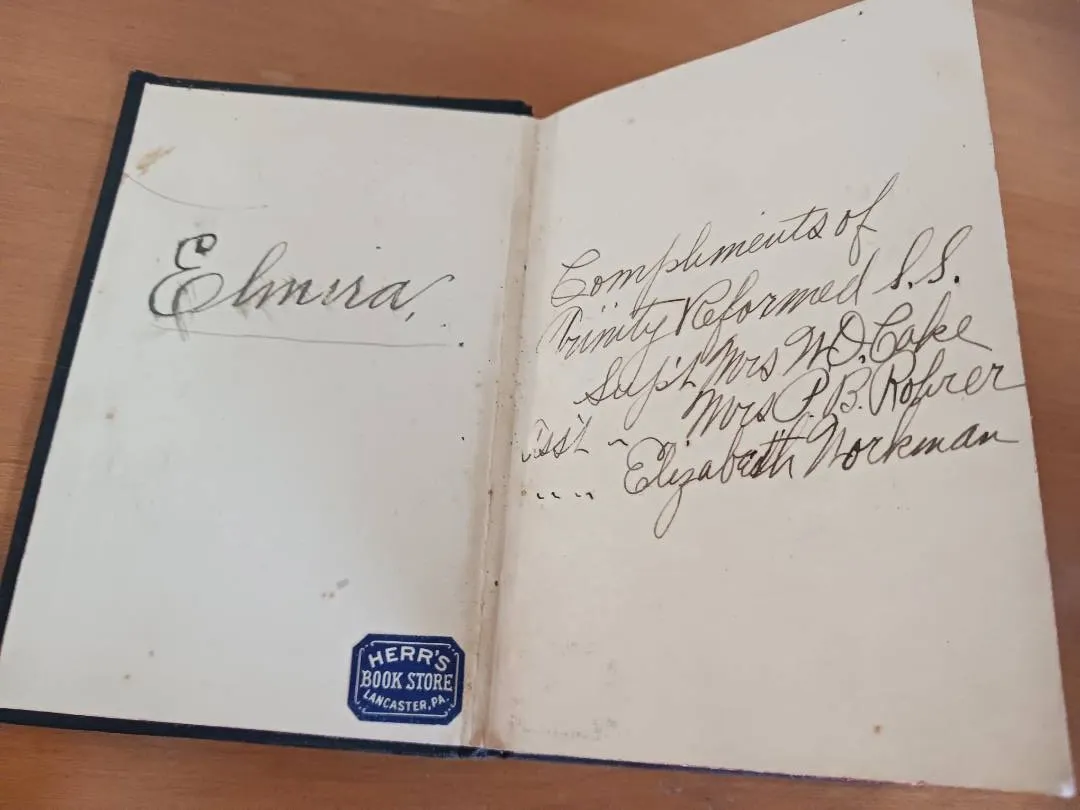 Elmira.
HERR'S
BOOK STORE
LANCASTER, PA.
Compliments of
Trinity Reformed S.S.
Sup't Mrs W.D. Cake
Mrs P.B. Rohrer
Ass't "
" " Elizabeth Workman